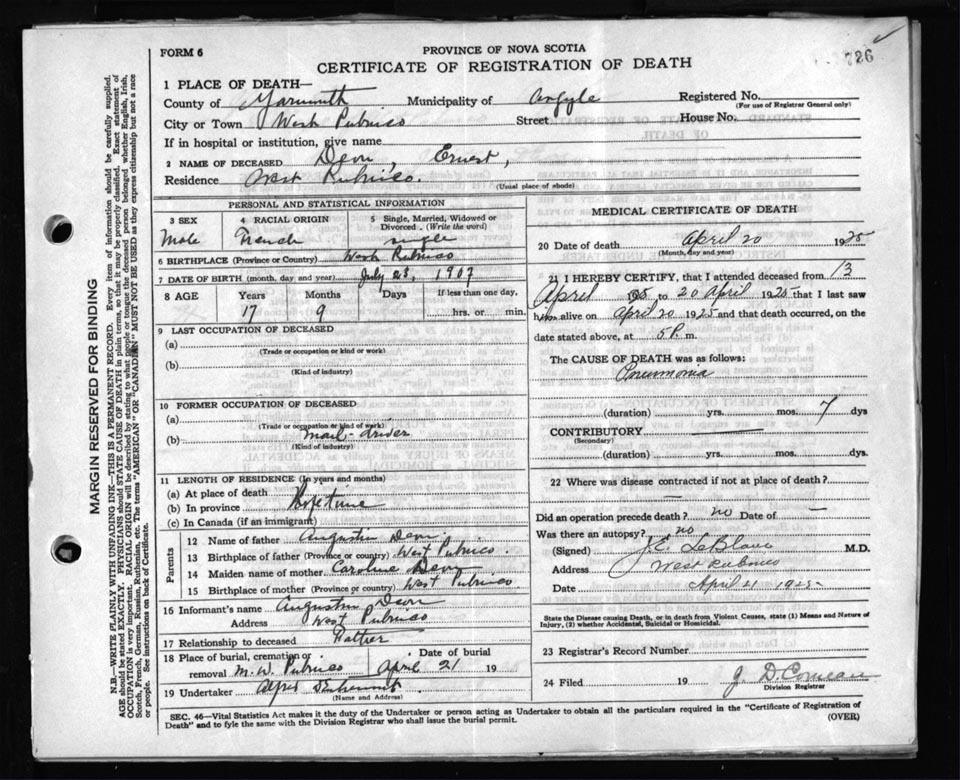 FORM 6
PROVINCE OF NOVA SCOTIA
726
CERTIFICATE OF REGISTRATION OF DEATH
1 PLACE OF DEATH—
County of Yarmouth Municipality of Argyle Registered No.
(For use of Registrar General only)
City or Town West Pubnico Street House No.
If in hospital or institution, give name
2 NAME OF DECEASED Deon, Ernest,
Residence West Pubnico.
(Usual place of abode)
PERSONAL AND STATISTICAL INFORMATION
3 SEX 4 RACIAL ORIGIN 5 Single, Married, Widowed or Divorced. (Write the word)
Male French single
6 BIRTHPLACE (Province or Country) West Pubnico
7 DATE OF BIRTH (month, day and year) July 1907
8 AGE Years Months Days If less than one day,
17 9 hrs. or min.
9 LAST OCCUPATION OF DECEASED
(a)
(Trade or occupation or kind or work)
(b)
(Kind of industry)
10 FORMER OCCUPATION OF DECEASED
(a)
(Trade or occupation or kind or work)
(b) mail-driver
(Kind of industry)
11 LENGTH OF RESIDENCE (In years and months)
(a) At place of death
(b) In province
(c) In Canada (if an immigrant)
Parents
12 Name of father Augustin Deon
13 Birthplace of father (Province or country) West Pubnico.
14 Maiden name of mother Caroline Deon
15 Birthplace of mother (Province or country) West Pubnico.
16 Informant's name Augustin Deon
Address West Pubnico
17 Relationship to deceased Father
18 Place of burial, cremation or removal M. W. Pubnico Date of burial April 21 19
19 Undertaker Alfred
(Name and Address)
MEDICAL CERTIFICATE OF DEATH
20 Date of death April 20 1925
(Month, day and year)
21 I HEREBY CERTIFY, that I attended deceased from 13
April 1925 to 20 April 1925 that I last saw
him alive on April 20 1925 and that death occurred, on
date stated above, at 5 P. m.
The CAUSE OF DEATH was as follows:
Pneumonia
(duration) yrs. mos. 7 dys
CONTRIBUTORY —
(Secondary)
(duration) yrs. mos. dys.
22 Where was disease contracted if not at place of death?
—
Did an operation precede death? no Date of —
Was there an autopsy? no
(Signed) J. E. LeBlanc M.D.
Address West Pubnico
Date April 21 1925
State the Disease causing Death, or in death from Violent Causes, state (1) Means and Nature of
Injury, (2) whether Accidental, Suicidal or Homicidal.
23 Registrar's Record Number
24 Filed 19 J. D. Comeau
Division Registrar
SEC. 46—Vital Statistics Act makes it the duty of the Undertaker or person acting as Undertaker to obtain all the particulars required in the "Certificate of Registration of
Death" and to fyle the same with the Division Registrar who shall issue the burial permit.
(OVER)
MARGIN RESERVED FOR BINDING
N.B.—WRITE PLAINLY WITH UNFADING INK—THIS IS A PERMANENT RECORD. Every item of information should be carefully supplied.
AGE should be stated EXACTLY. PHYSICIANS should STATE CAUSE OF DEATH in plain terms, so that it may be properly classified. Exact statement of
OCCUPATION is very important. RACIAL ORIGIN will be described by stating to what people or tongue the deceased person belonged whether English, Irish,
Scotch, French, German, Russian, Ruthenian, etc. The terms "AMERICAN" OR "CANADIAN" MUST NOT BE USED as they express citizenship but not a race
or people. See instructions on back of Certificate.